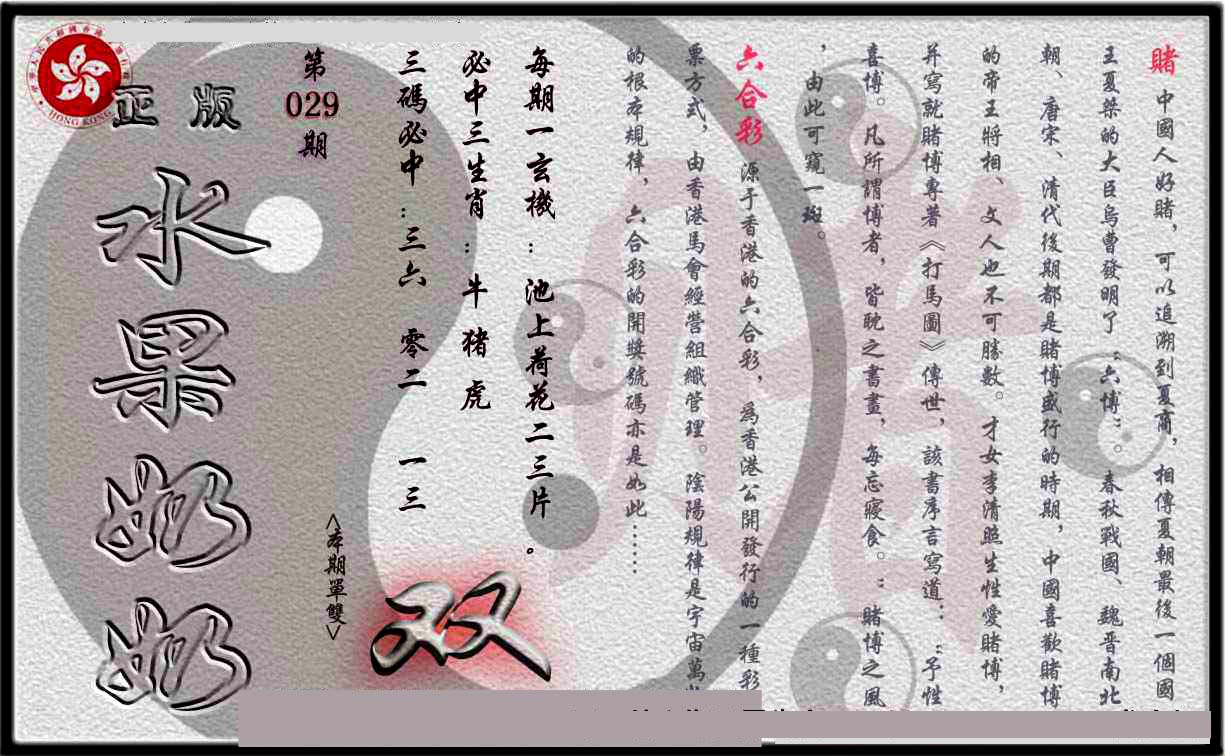 賭 中國人好賭，可以追溯到夏商，相傳夏朝最後一個國
王夏桀的大臣烏曹發明了“六博”。春秋戰國、魏晋南北
朝、唐宋、清代後期都是賭博盛行的時期，中國喜歡賭博
的帝王將相、文人也不可勝數。才女李清照生性愛賭博，
并寫就賭博專著《打馬圖》傳世，該書序言寫道：“予性
喜博。凡所謂博者，皆耽之書畫，每忘寢食。”賭博之風
，由此可窺一斑。
六合彩 源于香港的六合彩，爲香港公開發行的一種彩
票方式，由香港馬會經營組織管理。陰陽規律是宇宙萬
的根本規律，六合彩的開獎號碼亦是如此……
每期一玄機：池上荷花二三片。
必中三生肖：牛 豬 虎
三碼必中：三六 零二 一三
第
029
期
<本期單雙>
双
正版
水果奶奶
HONG KONG